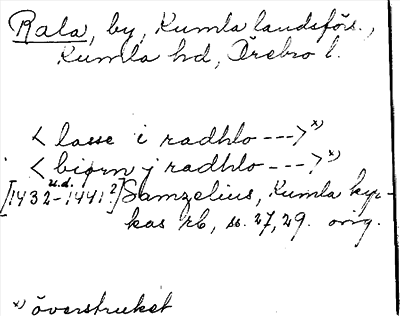 Rala, by, Kumla landsförs.,
Kumla hd, Örebro l.
< lasse i radhlo --->ˣ⁾
< biørn j radhlo --->ˣ⁾
[1432 u.d. - 1441?] Samzelius, Kumla kyr-
kas rb, ss. 27, 29. orig.
ˣ⁾ överstruket